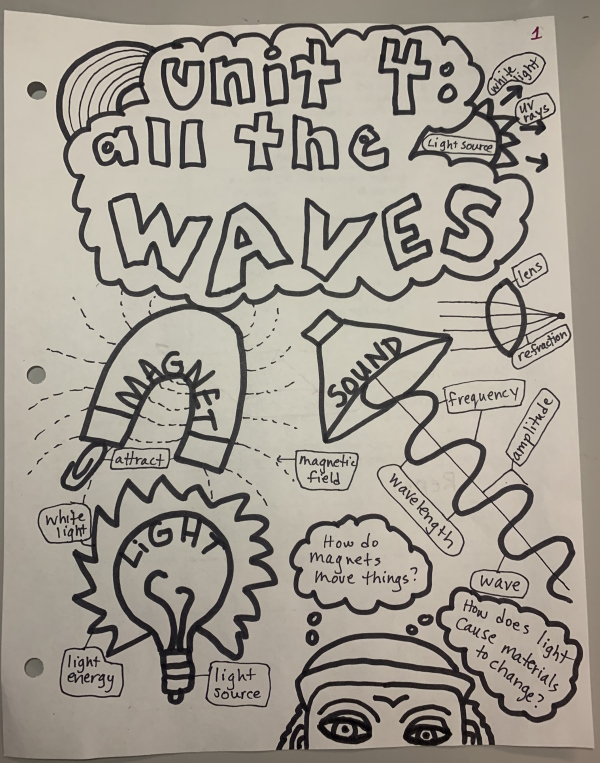 1
Unit 4:
all the
WAVES
white
light
UV
rays
Light Source
lens
refraction
MAGNET
attract
magnetic
field
SOUND
frequency
amplitude
wavelength
wave
white
light
LiGHT
light
energy
light
source
How do
magnets
move things?
How does light
Cause materials
to change?